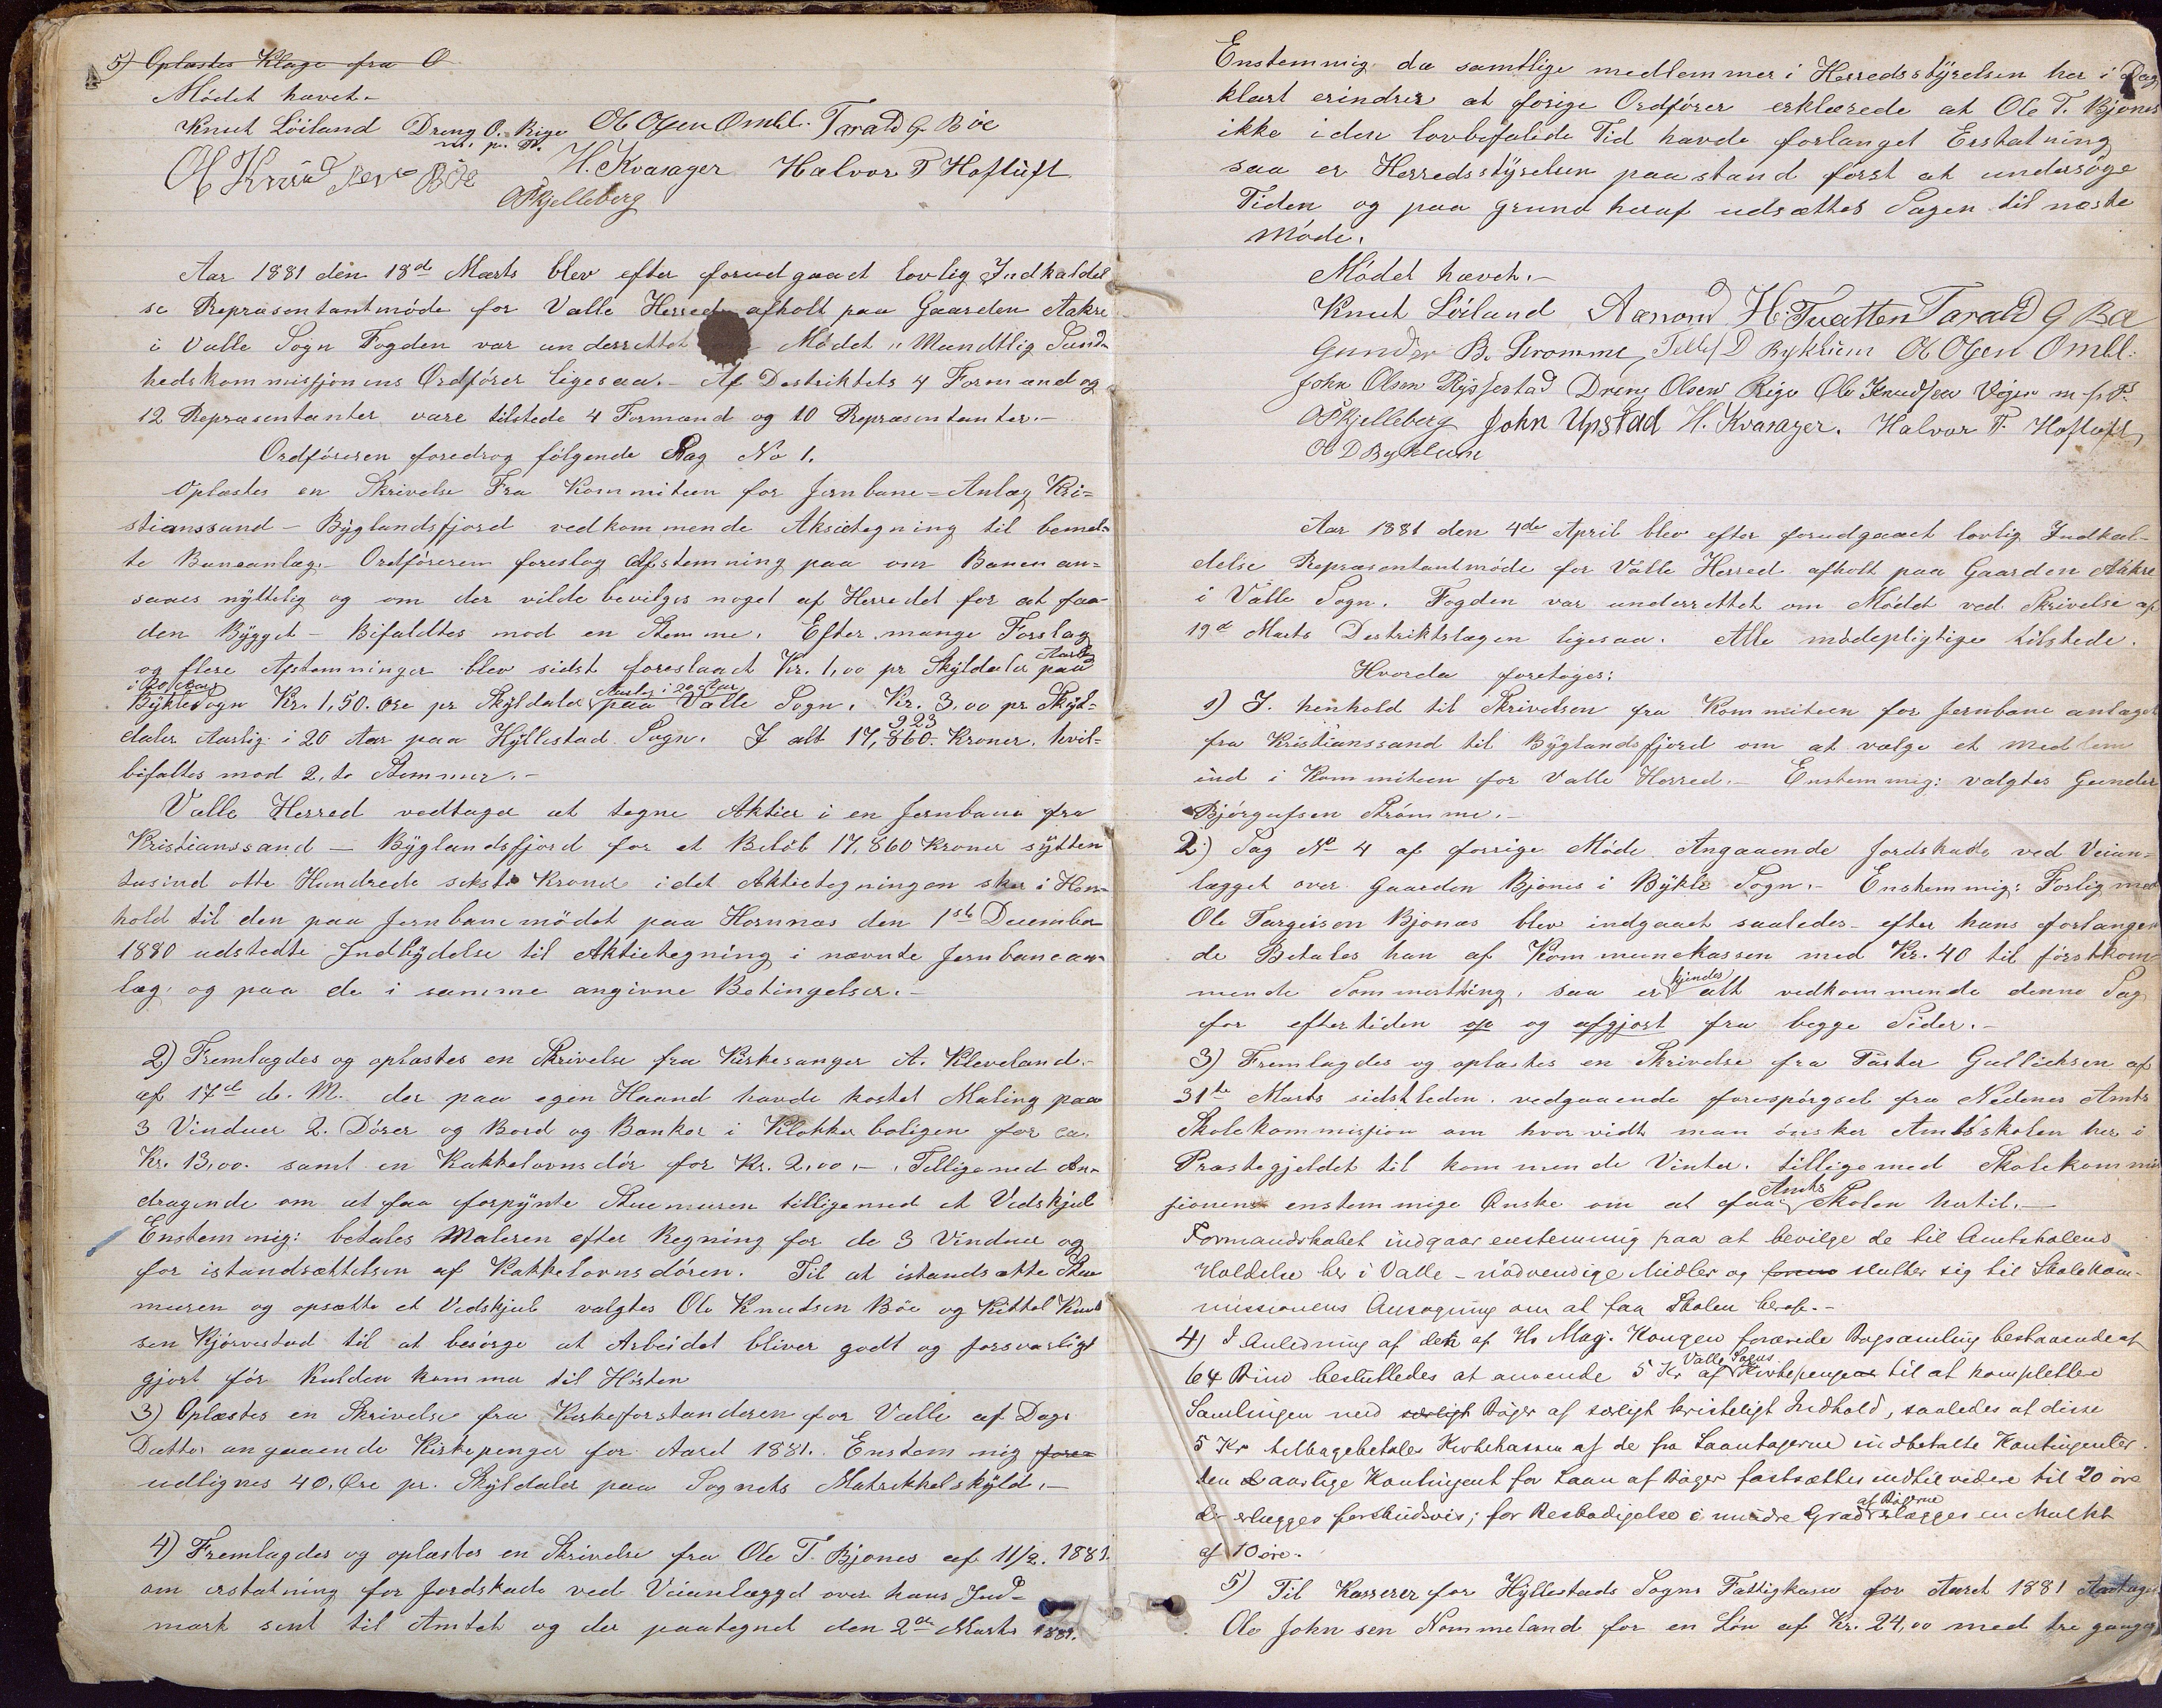 5) Oplæstes Klage fra O
Mödet hævet.-
Knut Löiland Dreng O. Rige Ol Olsen Ombl. Tarald G. Böe
m. p. P.
Ol Knudsen Böe H. Kvasager Halvor T Hoftuft
O P Kjelleberg
Aar 1881 den 18de Marts blev efter forudgaaet lovlig Indkaldel
se Repræsentantmöde for Valle Herred afholt paa Gaarden Aakre
i Valle Sogn Fogden var underrettet Mödet " Mundtlig Sund-
hedskommissjonens Ordförer ligesaa.- Af Destriktets 4 Formænd og
12 Repræsentanter vare tilstede 4 Formænd og 10 Repræsentanter.-
Ordföreren foredrog fölgende Sag No 1.
Oplæstes en Skrivelse Fra Kommiteen for Jernbane=Anlæg Kri=
stianssand - Byglandsfjord vedkommende Aksietegning til bemel-
te Baneanlæg.- Ordföreren foreslog Afstemning paa om Banen an=
saaes nyttelig og om der vilde bevilges noget af Herredet for at faa
den Bygget - Bifaldtes mod en Stemme. Efter mange Forslag
og flere Afstemninger blev sidst foreslaaet Kr. 1,00 pr Skyldaler Aarlig paa
i 20 Aar
Bykle Sogn Kr. 1,50. Øre pr Skyldaler Aarlig i 20 Aar paa Valle Sogn. Kr. 3,00 pr Skyl=
daler Aarlig i 20 Aar paa Hyllestad Sogn. I alt 17,860. 923 Kroner. hvil=
bifaltes mod 2, to Stemmer.-
Valle Herred vedtager at tegne Aktier i en Jernbane fra
Kristianssand - Byglandsfjord for et Belöb 17,860 Kroner sytten
tusind otte Hundrede seksti Kroner idet Aktietegningen sker i Hen-
hold til den paa Jernbanemödet paa Hornnæs den 1ste December
1880 udstedte Indbydelse til Aktietegning i nævnte Jernbanean-
læg. og paa de i samme angivne Betingelser.-
2) Fremlagdes og oplæstes en Skrivelse fra Kirkesanger A. Kleveland.-
af 17de d. M. der paa egen Haand havde kostet Maling paa
3 Vinduer 2. Dörer og Bord og Bænker i Klokkerboligen for ca.
Kr. 13,00. samt en Kakkelovnsdör for Kr. 2,00.- Tilligemed An-
dragende om at faa forpynte Stuemuren tilligemed et Vedskjul
Enstemmig: betales Maleren efter Regning for de 3 Vinduer og
for istandsættelsen af Kakkelovnsdören. Til at istandsætte Stue
muren og opsætte et Vedskjul valgtes Ole Knudsen Böe og Kittel Knud
sen Kjörvestad til at besörge at Arbeidet bliver godt og forsvarligt
gjort för Kulden kommer til Hösten
3) Oplæstes en Skrivelse fra Kirkeforstanderen for Valle af Dags
Datto angaaende Kirkepenger for Aaret 1881. Enstemmig fore=
udlignes 40. Øre pr. Skyldaler paa Sognets Matrikkelskyld.-
4) Fremlagdes og oplæstes en Skrivelse fra Ole T. Bjones af 11/2. 1881.
om erstatning for Jordskade ved Veianlægget over hans Ind-
mark sent til Amtet og der paategnet den 2den Marts 1881.
Enstemmig da samtlige medlemmer i Herredsstyrelsen her i Dag
klart erindrer at forige Ordförer erklærede at Ole T. Bjones
ikke i den lovbefalede Tid havde forlanget Erstatning
saa er Herredsstyrelsen paastand först at undersöge
Tiden og paa grund heraf udsættes Sagen til næste
Möde.
Mödet hævet.-
Knut Löiland Aanond H. Tveitten Tarald G Bö
Gunder B. Strömme, Tellef D Byklum Ol Olsen Ombl:
John Olsen Rysstad Dreng Olsen Rige Ole Knudsen Veien m. p. P.
O P Kjelleberg John Upstad H. Kvasager. Halvor T. Hoftuft
Ol D Byklum
Aar 1881 den 4de April blev efter forudgaaet lovlig Indkal-
delse Repræsentantmöde for Valle Herred afholt paa Gaarden Aakre
i Valle Sogn. Fogden var underrettet om Mödet ved Skrivelse af
19de Marts Destriktslægen ligesaa. Alle mödepligtige tilstede.
Hvorda foretoges:
1) I. henhold til Skrivelsen fra Kommiteen for Jernbane anlæget
fra Kristianssand til Byglandsfjord om at vælge et medlem
ind i Kommiteen for Valle Herred.- Enstemmig: valgtes Gunder
Björgufsen Strömme.-
2) Sag No 4 af forrige Möde Angaaende Jordskade ved Veian-
lægget over Gaarden Bjones i Bykle Sogn.- Enstemmig: Forlig med
Ole Targeisen Bjones blev indgaaet saaledes- efter hans forlangen
de Betales han af Kommunekassen med Kr. 40 til förstkom-
mende Sommerthing, saa er kjendes alt vedkommende denne Sag
for eftertiden op og afgjort fra begge Sider.-
3) Fremlagdes og oplæstes en Skrivelse fra Paster Gullichsen af
31te Marts sidstleden. vedgaaende forespörgsel fra Nedenes Amts
Skolekommission om hvor vidt man önsker Amtsskolen her i
Præstegjeldet til kommende Vinter. tilligemed Skolekommis
sionens enstemmige Ønske om at faa Amts Skolen hertil.-
Formandskabet indgaar enstemmig paa at bevilge de til Amtskolens
Holdelse her i Valle - nödvendige Midler og slutter sig til Skolekom-
missionens Ansögning om at faa Skolen herop.-
4) I Anledning af den af Hs Maj. Kongen forærede Bogsamling bestaaende af
64 Bind besluttedes at anvende 5 Kr af Valle Sogns Kirkepenge til at komplettere
Samlingen med særligt Böger af særligt kristeligt Indhold, saaledes at disse
5 Kr tilbagebetales Kirkekassen af de fra Laantagerne indbetalte Kontingenter.
Den aarlige Kontingent for Laan af Böger fastsættes indtil videre til 20 öre
der erlægges forskudsvis; for Beskadigelse i mindre Grad af Bögerne erlægges en Mulkt
af 10 öre.
5) Til Kasserer for Hyllestads Sogns Fattigkasse for Aaret 1881 Antages
Ole Johnsen Nommeland for en Lön af Kr. 24,00 med tre ganger